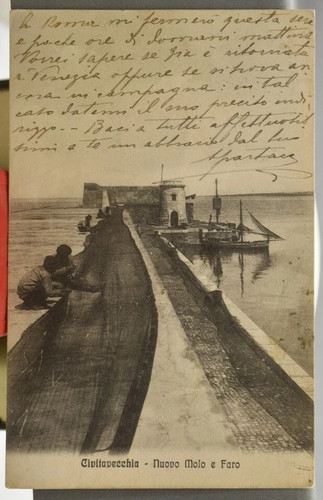 A Roma mi fermerò questa sera
e poche ore di domani mattina
Vorrei sapere se Zia è ritornata
a Venezia oppure se si trova an
cora in campagna: in tal
caso datemi il suo preciso indi
rizzo. - Baci a tutti affettuosis
simi e te un abbraccio dal tuo
Spartaco
Civitavecchia - Nuovo Molo e Faro